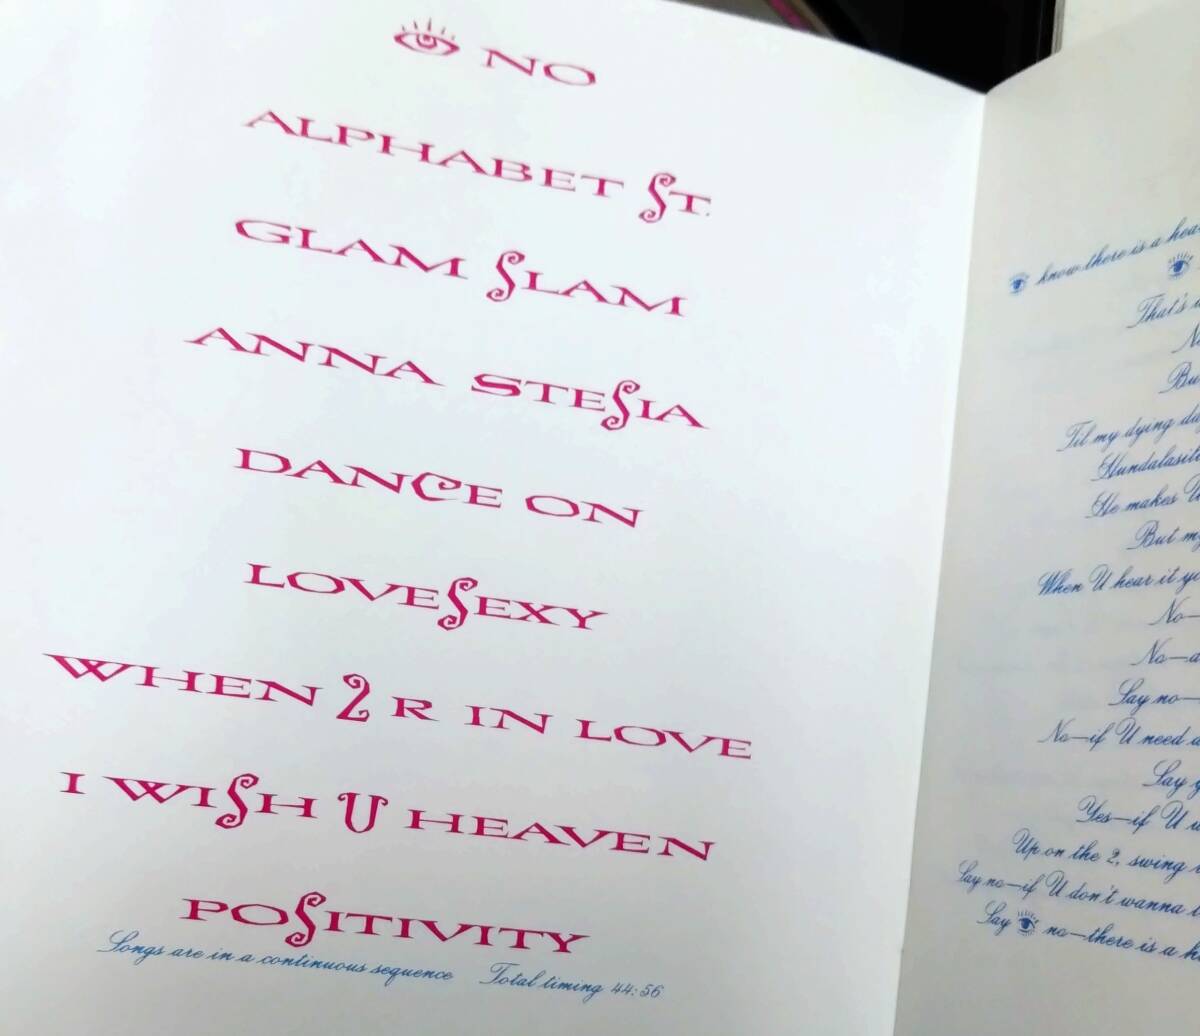 👁 NO
ALPHABET ST.
GLAM SLAM
ANNA STESIA
DANCE ON
LOVESEXY
WHEN 2 R IN LOVE
I WISH U HEAVEN
POSITIVITY
Songs are in a continuous sequence Total timing 44:56
👁 know there is a
👁
That's
No
But
Til my dying
He makes
But my
When U hear it
No—
No—
Say no—
No—if U need
Say
Yes—if U
Up on the 2, swing
Say no—if U don't wanna
Say 👁 no—there is a